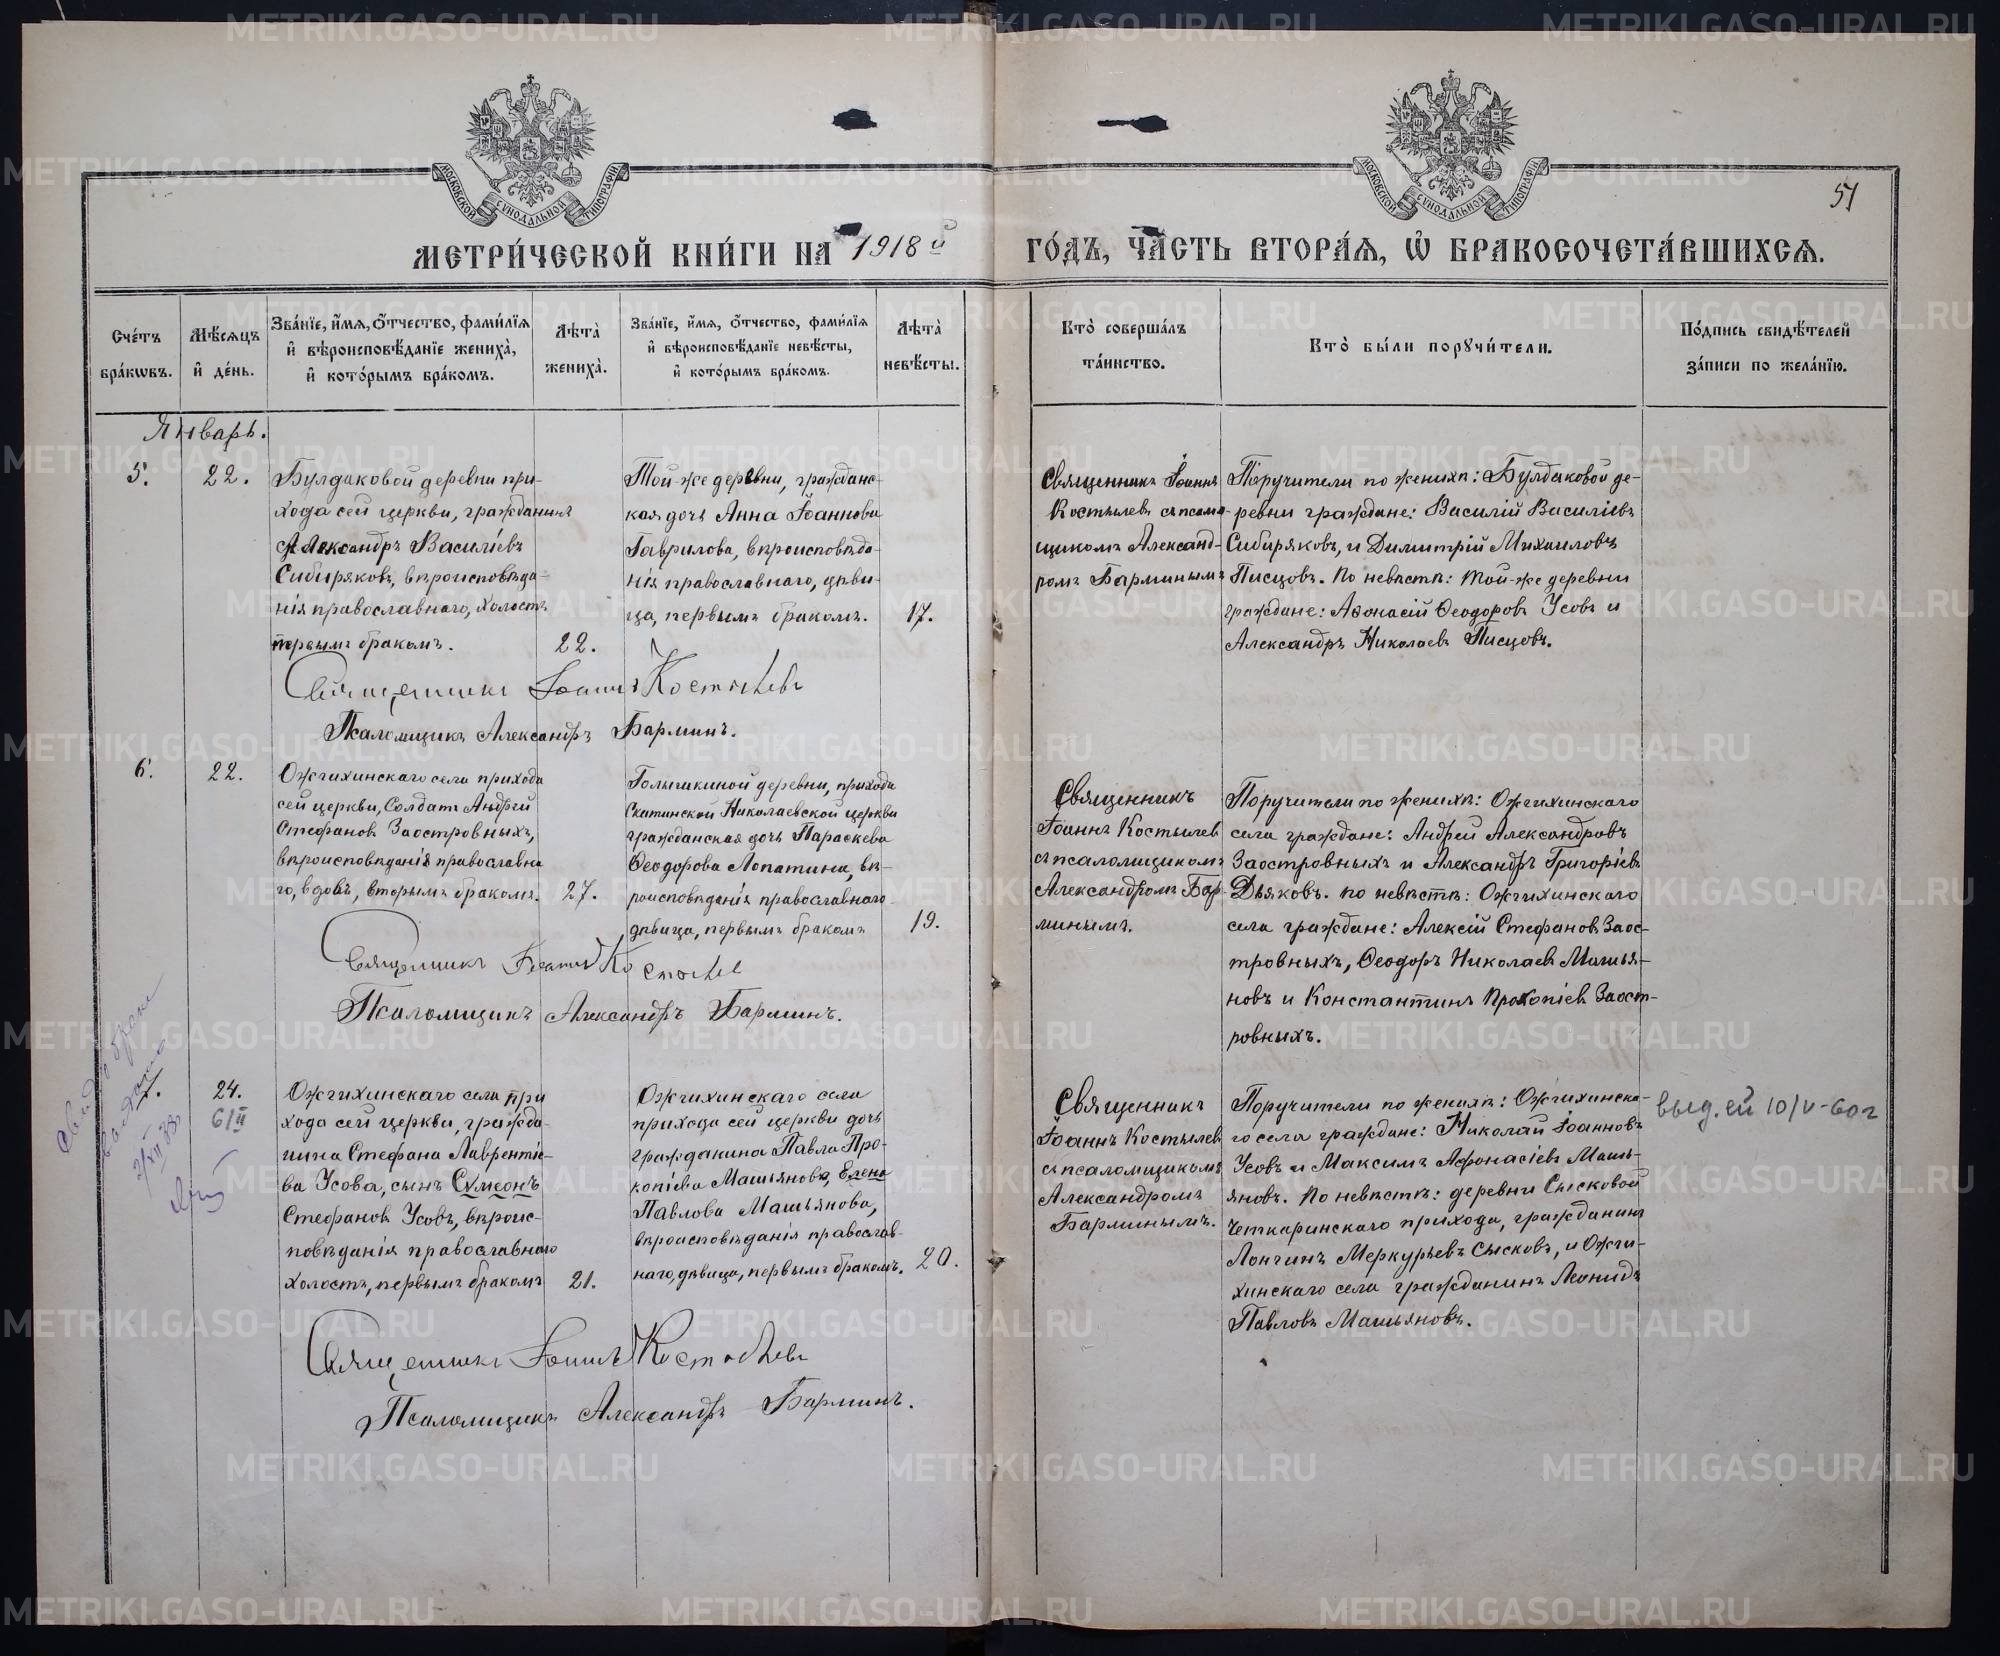 МОСКОВСКОЙ СѴНОДАЛЬНОЙ ТИПОГРАФІИ
МОСКОВСКОЙ СѴНОДАЛЬНОЙ ТИПОГРАФІИ
51
МЕТРИ́ЧЕСКОЙ КНИ́ГИ НА 1918й
ГО́ДЪ, ЧА́СТЬ ВТОРА́Я, Ѡ БРАКОСОЧЕТА́ВШИХСЯ.
Сче́тъ бра́кѡвъ.
Мѣ́сяцъ и де́нь.
Зва́нїе, и́мя, ѻ́тчество, фами́лїя и вѣроисповѣ́данїе жениха̀, и кото́рымъ бра́комъ.
Лѣ́та̀ жениха̀.
Зва́нїе, и́мя, ѻ́тчество, фами́лїя и вѣроисповѣ́данїе невѣ́сты, и кото́рымъ бра́комъ.
Лѣ́та̀ невѣ́сты.
Кто̀ соверша́лъ та́инство.
Кто̀ бы́ли порꙋчи́тели.
По́дпись свидѣ́телей за́писи по жела́нїю.
Январь.
5.
22.
Булдаковой деревни при-
хода сей церкви, гражданинъ
Александръ Василіевъ
Сибиряковъ, вѣроисповѣда-
нія православнаго, холостъ
первымъ бракомъ.
22.
Той-же деревни, гражданс-
кая дочь Анна Іоаннова
Гаврилова, вѣроисповѣда-
нія православнаго, дѣви-
ца, первымъ бракомъ.
17.
Священникъ Іоаннъ
Костылев съ псалом-
щикомъ Александ-
ромъ Барминымъ
Поручители по женихѣ: Булдаковой де-
ревни граждане: Василій Василіевъ
Сибиряковъ, и Димитрій Михаиловъ
Писцовъ. По невѣстѣ: той-же деревни
граждане: Аѳонасій Ѳеодоровъ Усовъ и
Александръ Николаевъ Писцовъ.
Священникъ Іоаннъ Костылевъ
Псаломщикъ Александръ Барминъ.
6.
22.
Ожгихинскаго села прихода
сей церкви, Солдатъ Андрей
Стефановъ Заостровныхъ,
вѣроисповѣданія православна
го, вдовъ, вторымъ бракомъ.
27.
Голышкиной деревни, прихода
Скатинской Николаевской церкви
гражданская дочь Параскева
Ѳеодорова Лопатина, вѣ-
роисповѣданія православнаго
дѣвица, первымъ бракомъ
19.
Священникъ
Іоаннъ Костылев
съ псаломщикомъ
Александромъ Бар-
минымъ.
Поручители по женихѣ: Ожгихинскаго
села граждане: Андрей Александровъ
Заостровныхъ и Александръ Григоріевъ
Дьяковъ. по невѣстѣ: Ожгихинскаго
села граждане: Алексій Стефановъ Заос-
тровныхъ, Ѳеодоръ Николаевъ Машья-
новъ и Константинъ Прокопіевъ Заост-
ровныхъ.
Священникъ Іоаннъ Костылев
Псаломщикъ Александръ Барминъ.
7.
24.
6/II
Ожгихинскаго села при
хода сей церкви, гражда-
нина Стефана Лаврентіе-
ва Усова, сынъ Сѵмеонъ
Стефановъ Усовъ, вѣроис-
повѣданія православнаго
холостъ, первымъ бракомъ
21.
Ожгихинскаго села
прихода сей церкви дочь
гражданина Павла Про-
копіева Машьянова, Елена
Павлова Машьянова,
вѣроисповѣданія православ-
наго, дѣвица, первымъ бракомъ.
20.
Священникъ
Іоаннъ Костылев
съ псаломщикомъ
Александромъ
Барминымъ.
Поручители по женихѣ: Ожгихинска-
го села граждане: Николай Іоанновъ
Усовъ и Максимъ Афонасіевъ Машь-
яновъ. По невѣстѣ: деревни Сысковой
Четкаринскаго прихода, гражданинъ
Лонгинъ Меркурьевъ Сысковъ, и Ожги-
хинскаго села гражданинъ Леонидъ
Павловъ Машьяновъ.
выд. ей 10/V-60г
Свид. о браке
выдано
Священникъ Іоаннъ Костылевъ
Псаломщикъ Александръ Барминъ.
METRIKI.GASO-URAL.RU